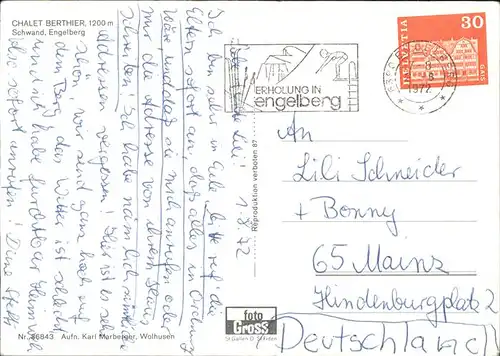 CHALET BERTHIER, 1200 m
Schwand, Engelberg
Liebe Lili! 1.8.72
Ich bin sehr in Eile. Bitte ruf' die
Eltern sofort an, daß alles in Ordnung
wäre, und sag sie mich anrufen oder
mir die Adresse von ihrem Haus
schreiben! Ich habe nämlich sämtliche
Adressen vergessen! Hier ist es sehr
schön, wir sind ganz hoch auf
dem Berg, das Wetter ist schlecht
und ich habe furchtbar Heimweh
also sofort anrufen! Deine
Nr. 36843 Aufn. Karl Marberger, Wolhusen
Reproduktion verboten 87
foto
Gross
St. Gallen
ERHOLUNG IN
engelberg
ENGELBERG
1972
HELVETIA
30
GAIS
An
Lili Schneider
+ Bonny
65 Mainz
Hindenburgplatz 2
Deutschland